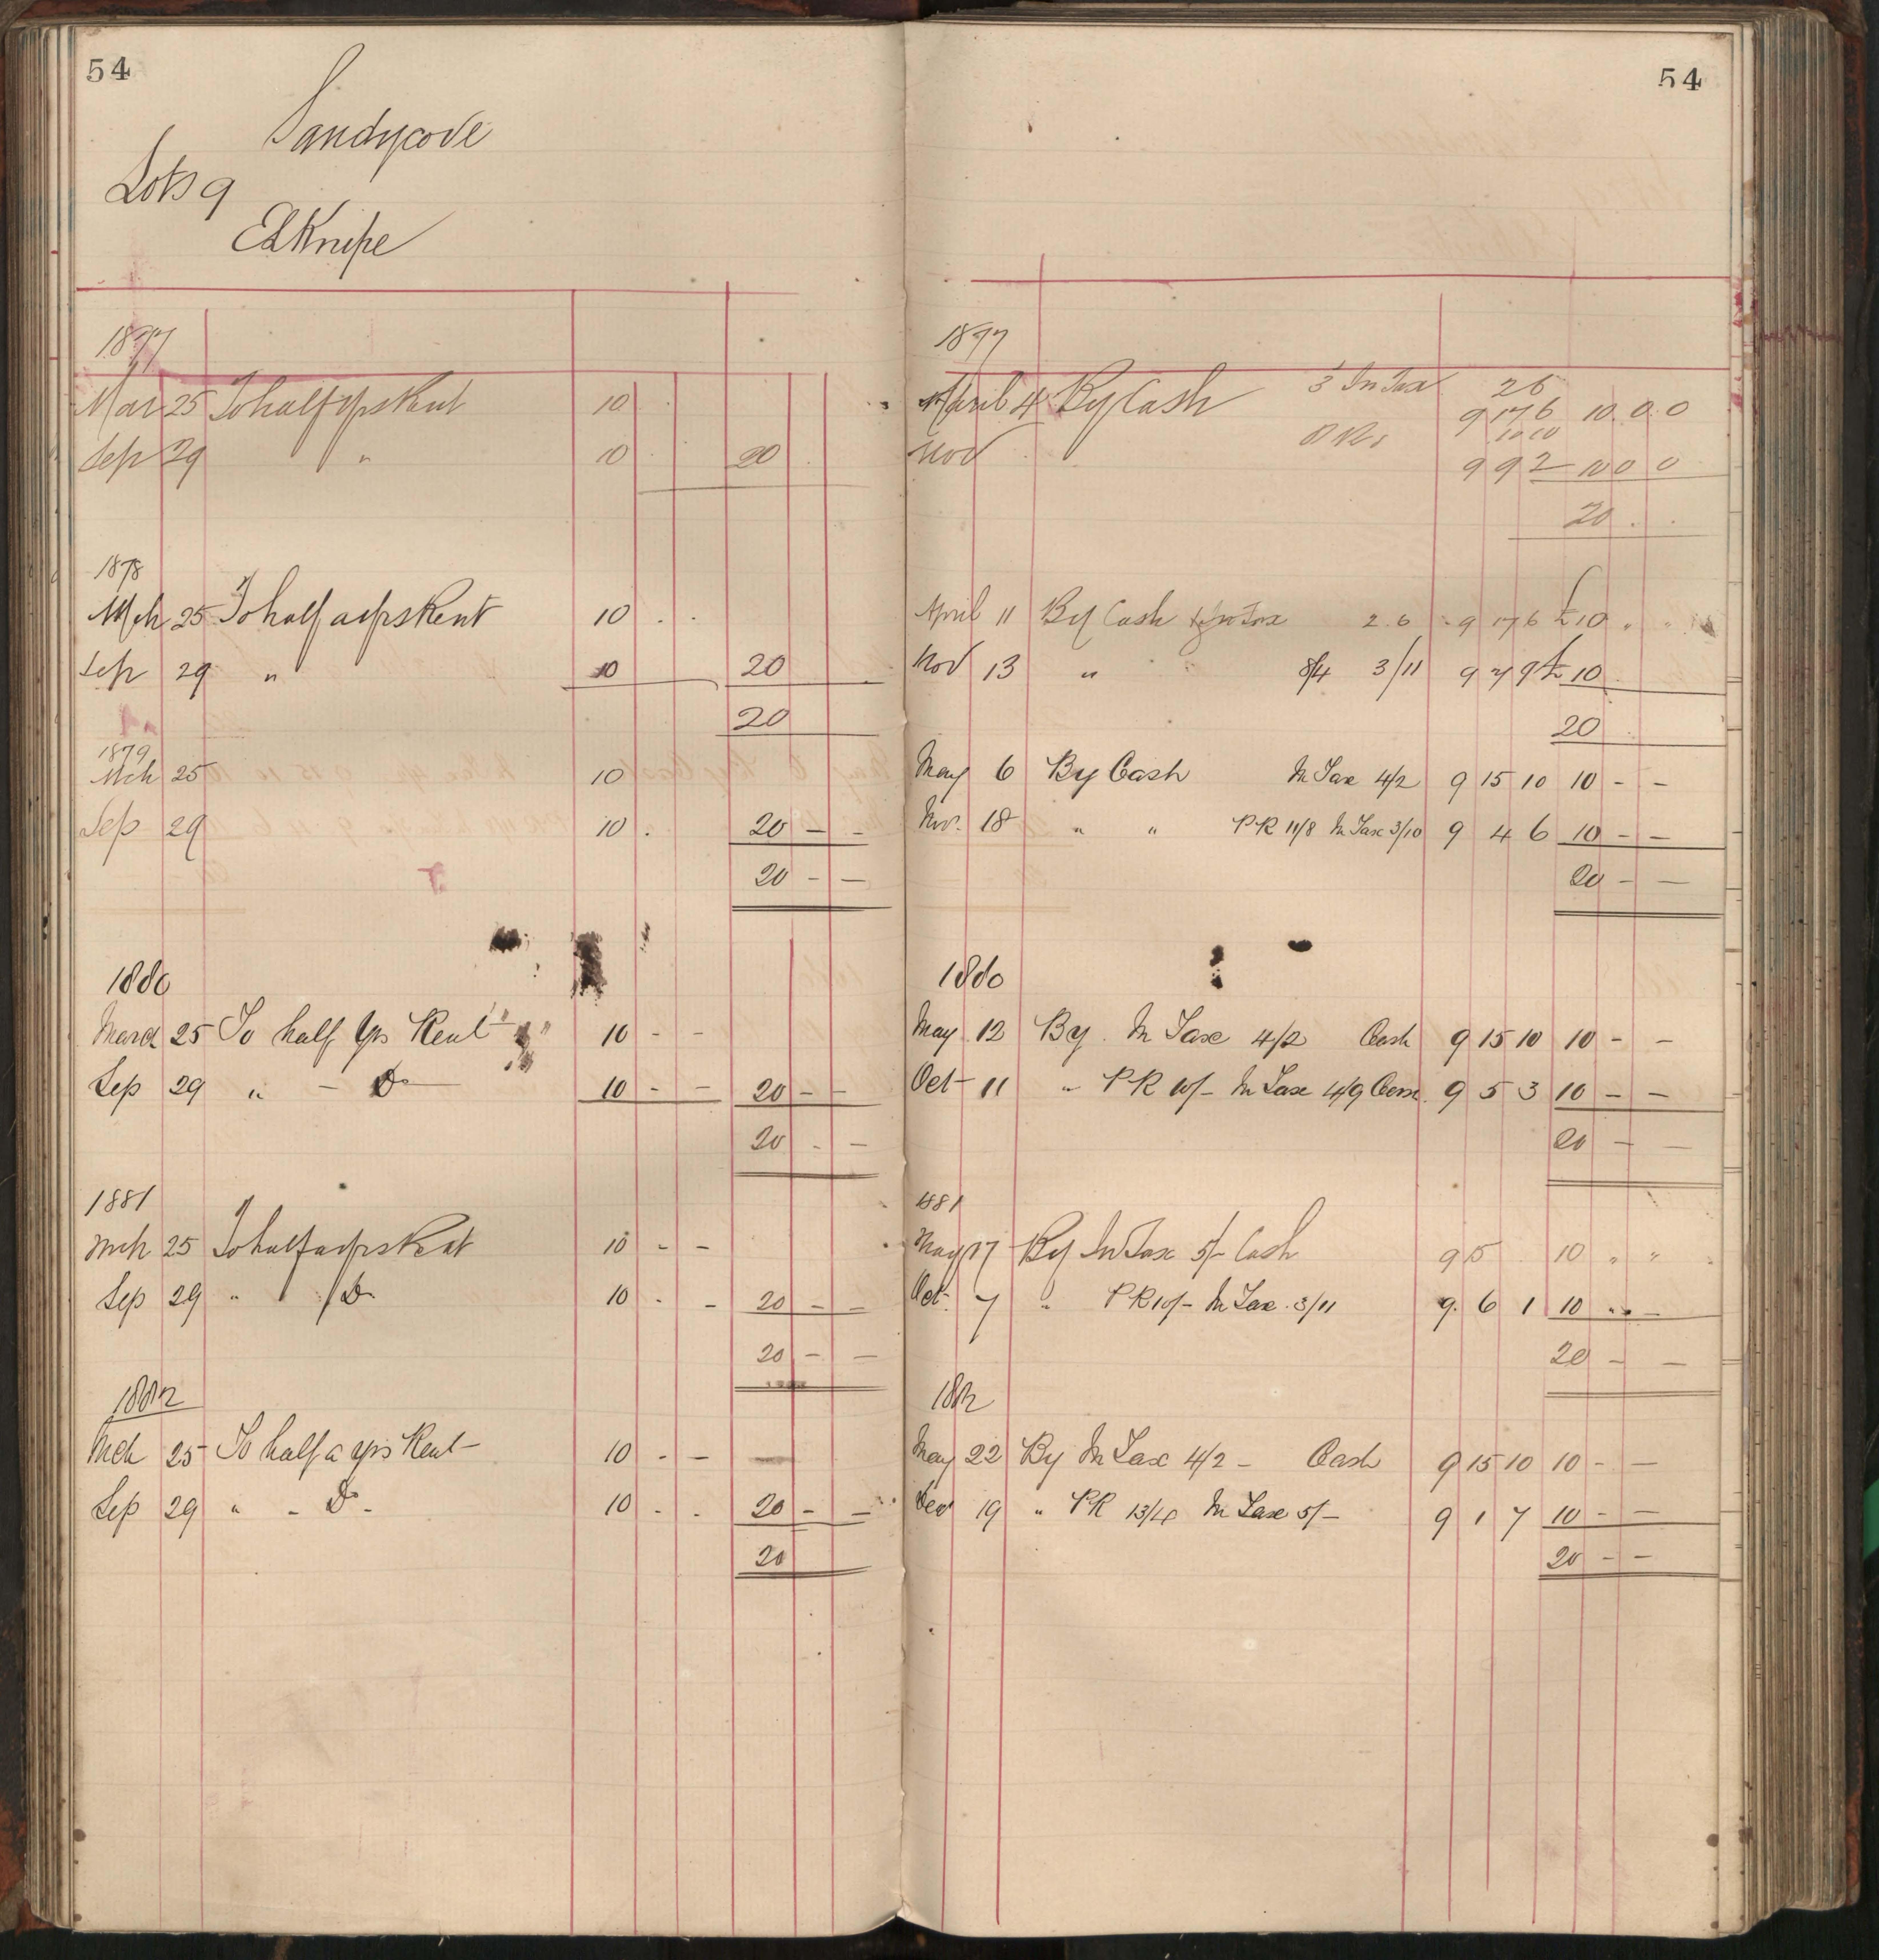 54
Sandycove
Lots 9
Ed Knipe
1877
Mar 25 To half yrs Rent 10 . 
Sep 29 " 10 . 20 .
1878
Mch 25 To half a yrs Rent 10 . .
Sep 29 " 10 20
20
1879
Mch 25 10
Sep 29 10 . 20 - -
20 - -
1880
March 25 To half Yrs Rent 10 - -
Sep 29 " - Do 10 - - 20 - -
20 - -
1881
Mch 25 To half a yrs Rent 10 - -
Sep 29 " Do 10 - - 20 - -
20 - -
1882
Mch 25 To half a yrs Rent 10 - -
Sep 29 " - Do - 10 - . 20 - -
20
54
1877
April 4 By Cash In Tax 2 6
9 17 6 10 . 0 . 0
10 10
Nov 9 9 2 10 0 0
20 . .
April 11 By Cash In Tax 2.6 9 17 6 £10 " "
Nov 13 " " 8/4 3/11 9 7 9 £10
20
May 6 By Cash In Tax 4/2 9 15 10 10 - -
Nov. 18 " " PR 11/8 In Tax 3/10 9 4 6 10 - -
20 - -
1880
May 12 By In Tax 4/2 Cash 9 15 10 10 - -
Oct 11 " PR 10/- In Tax 4/9 9 5 3 10 - -
20 - -
1881
May 17 By In Tax 5/- Cash 9 15 10 " "
Oct. 7 " PR 10/- In Tax 3/11 9 6 1 10 " -
20 - -
1882
May 22 By In Tax 4/2 - Cash 9 15 10 10 - -
19 " PR 13/4 In Tax 5/- 9 1 7 10 - -
20 - -